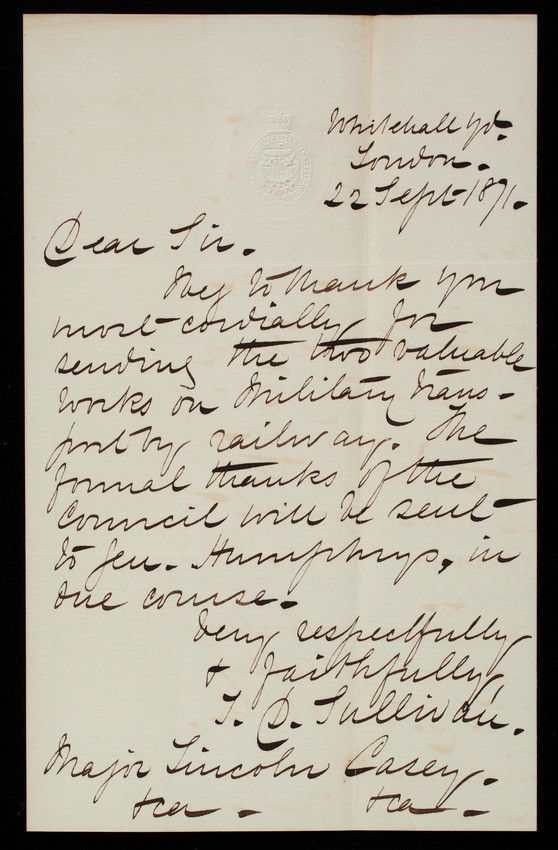 Whitehall Yd.
London.
22 Sept 1871.
Dear Sir.
I beg to thank you
most cordially for
sending the two valuable
works on Military trans-
port by railway. The
formal thanks of the
Council will be sent
to Gen. Humphrys, in
due course.
Very respectfully
& faithfully,
Sullivan.
Major Lincoln Casey.
&ca - &ca -